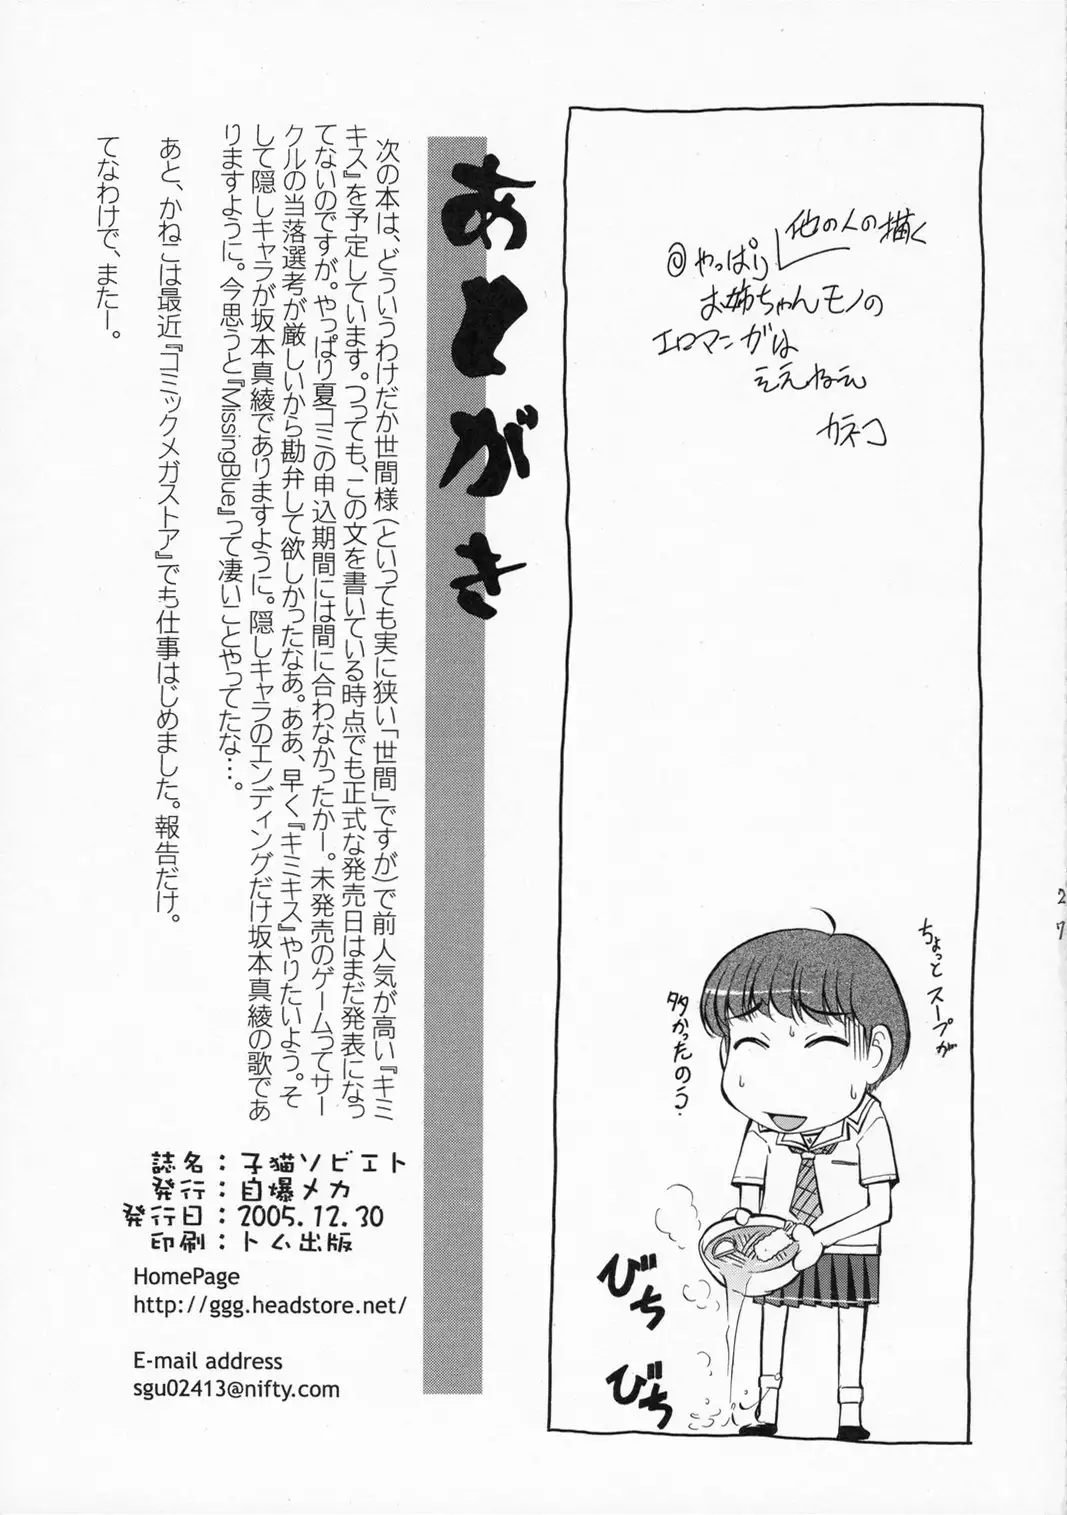 @やっぱり他の人の描く
お姉ちゃんモノの
エロマンガは
ええねえ
カネコ
ちょっとスープが
多かったのう
びち
びち
27
あとがき
次の本は、どういうわけだか世間様(といっても実に狭い「世間」ですが)で前人気が高い『キミ
キス』を予定しています。つっても、この文を書いている時点でも正式な発売日はまだ発表になっ
てないのですが。やっぱり夏コミの申込期間には間に合わなかったかー。未発売のゲームってサー
クルの当落選考が厳しいから勘弁して欲しかったなあ。ああ、早く『キミキス』やりたいよう。そ
して隠しキャラが坂本真綾でありますように。隠しキャラのエンディングだけ坂本真綾の歌であ
りますように。今思うと『MissingBlue』って凄いことやってたな…。
あと、かねこは最近『コミックメガストア』でも仕事はじめました。報告だけ。
てなわけで、またー。
誌名：子猫ソビエト
発行：自爆メカ
発行日：2005.12.30
印刷：トム出版
HomePage
http://ggg.headstore.net/
E-mail address
sgu02413@nifty.com